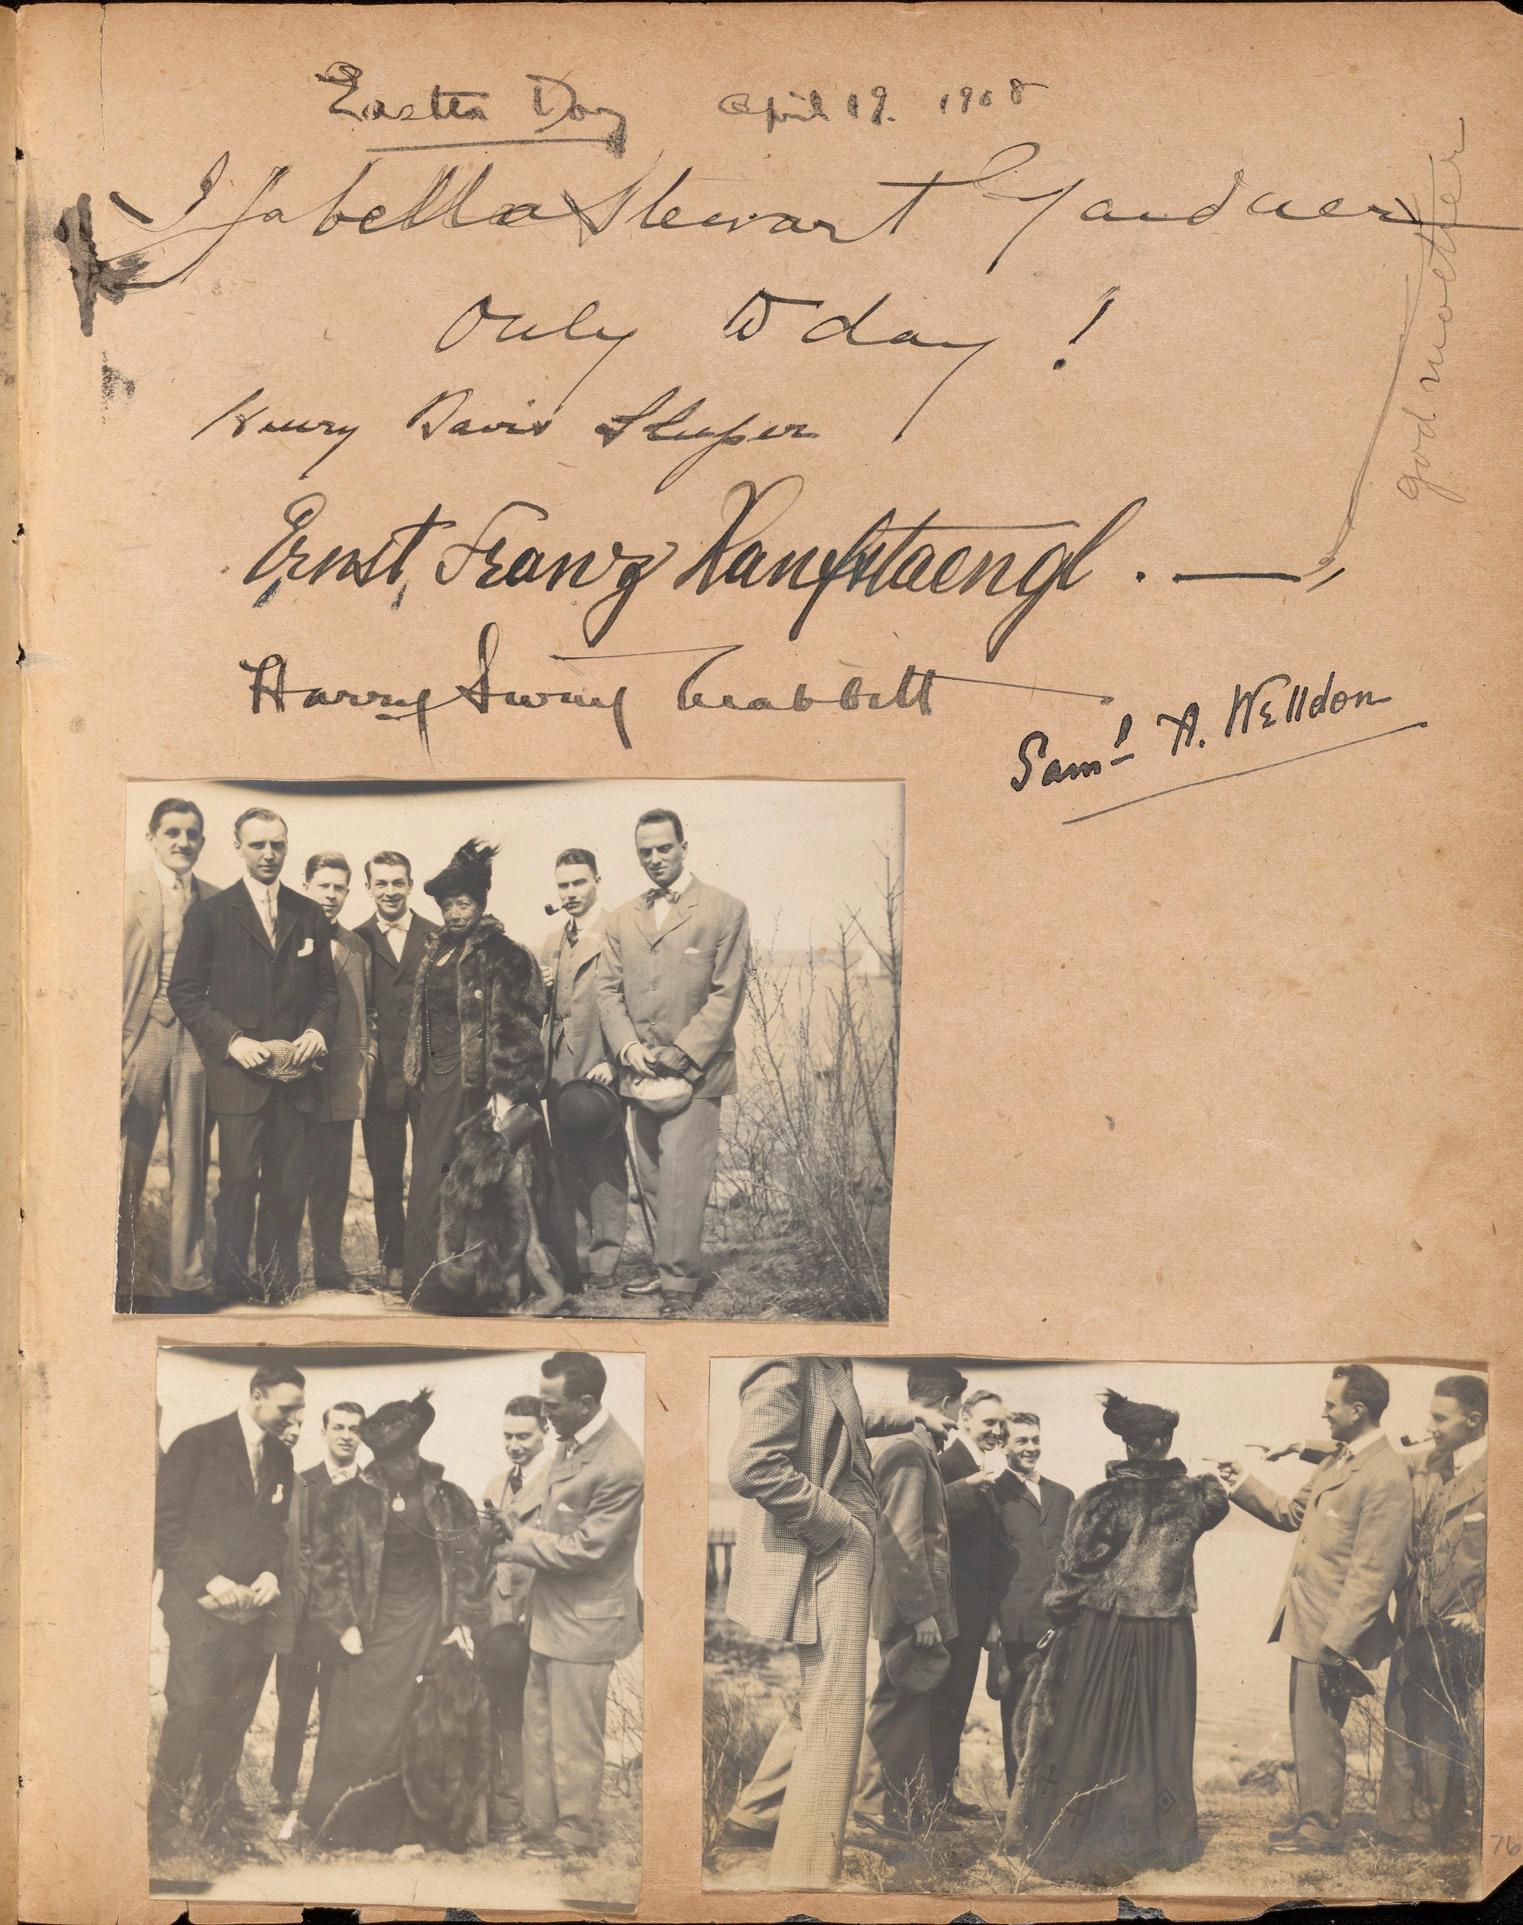 Easter Day April 19. 1908
Isabella Stewart Gardner
Only to day!
Henry Davis Sleeper
Ernst Franz Hanfstaengl. —
Harry Swing
Sam'l A. Welldon
god mother
76